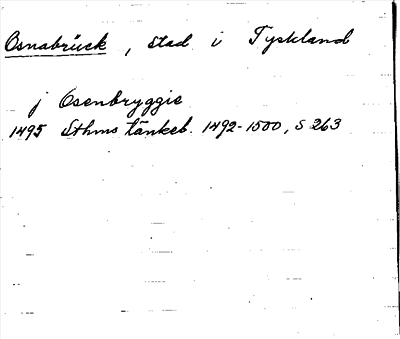 Osnabrück, stad i Tyskland
j Osenbryggie
1495 Sthms tänkeb. 1492-1500, s 263